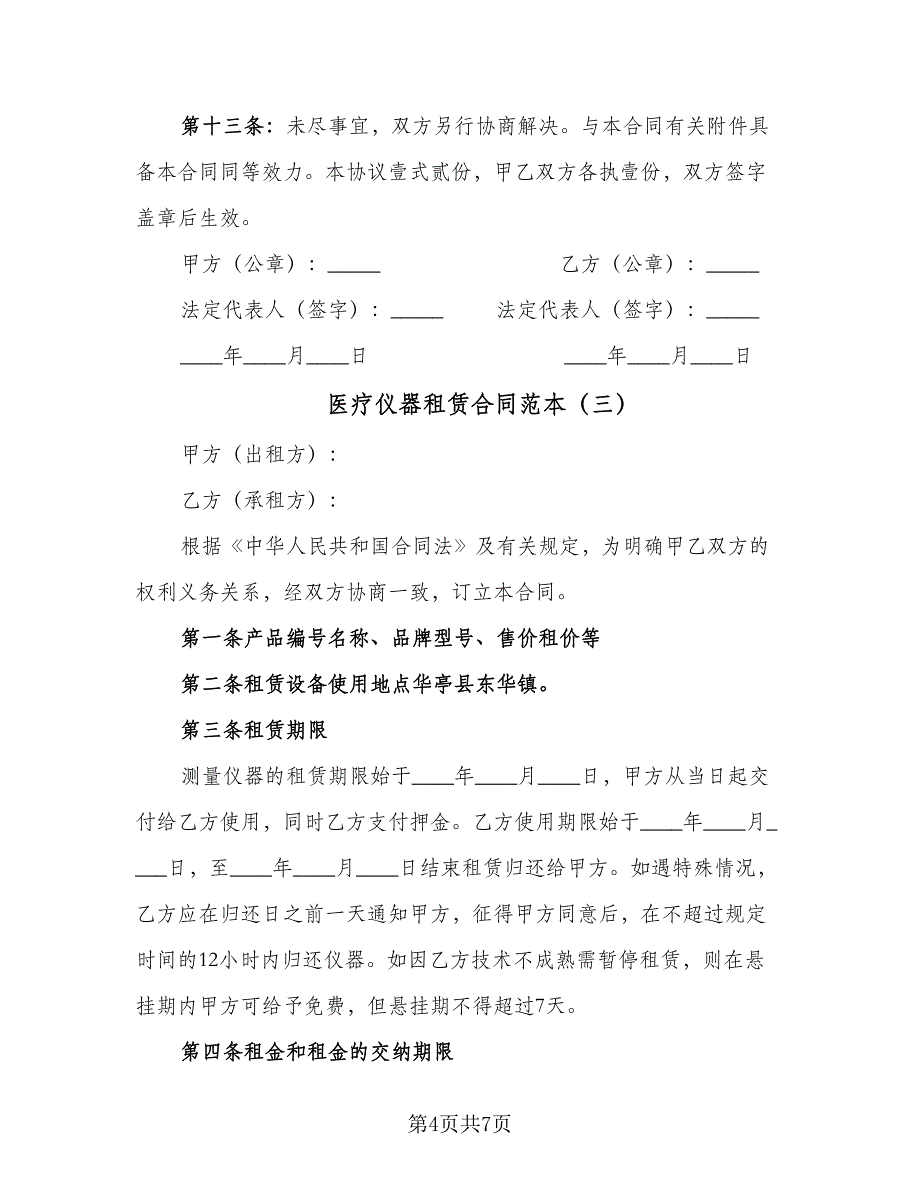 第十三条：未尽事宜，双方另行协商解决。与本合同有关附件具
备本合同同等效力。本协议壹式贰份，甲乙双方各执壹份，双方签字
盖章后生效。
甲方（公章）：_____ 乙方（公章）：_____
法定代表人（签字）：_____ 法定代表人（签字）：_____
____年____月____日 ____年____月____日
医疗仪器租赁合同范本（三）
甲方（出租方）：
乙方（承租方）：
根据《中华人民共和国合同法》及有关规定，为明确甲乙双方的
权利义务关系，经双方协商一致，订立本合同。
第一条产品编号名称、品牌型号、售价租价等
第二条租赁设备使用地点华亭县东华镇。
第三条租赁期限
测量仪器的租赁期限始于____年____月____日，甲方从当日起交
付给乙方使用，同时乙方支付押金。乙方使用期限始于____年____月_
___日，至____年____月____日结束租赁归还给甲方。如遇特殊情况，
乙方应在归还日之前一天通知甲方，征得甲方同意后，在不超过规定
时间的12小时内归还仪器。如因乙方技术不成熟需暂停租赁，则在悬
挂期内甲方可给予免费，但悬挂期不得超过7天。
第四条租金和租金的交纳期限
第4页共7页